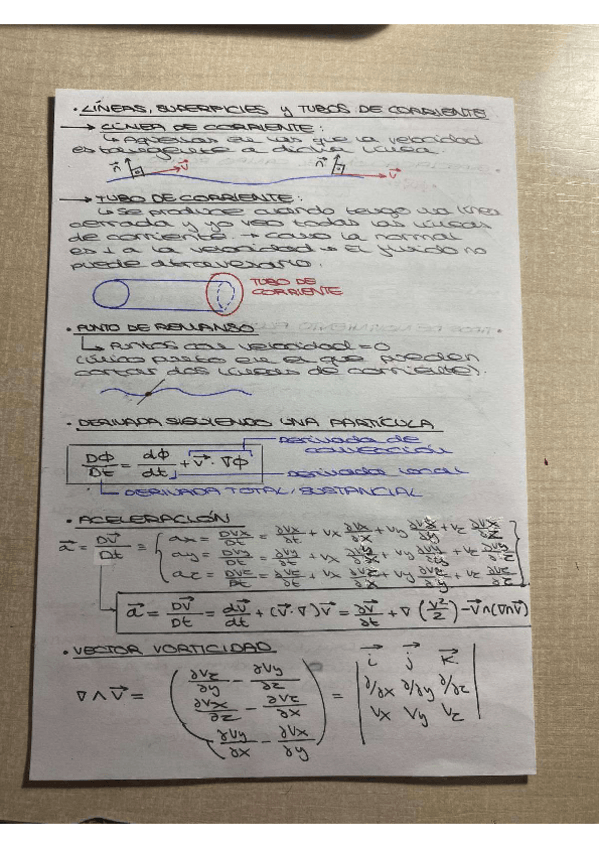 · LÍNEAS, SUPERFICIES Y TUBOS DE CORRIENTE
→ LÍNEA DE CORRIENTE:
↳ Aquellas en las que la velocidad
es tangente a dicha línea.
n⃗ v⃗ n⃗ v⃗
→ TUBO DE CORRIENTE:
↳ Se produce cuando tengo una línea
cerrada y yo veo todas las líneas
de corriente → como la normal
es ⊥ a la velocidad → El fluido no
puede atravesarlo.
TUBO DE
CORRIENTE
· PUNTO DE REMANSO
↳ Puntos con velocidad = 0
(Único punto en el que pueden
cortar dos líneas de corriente).
· DERIVADA SIGUIENDO UNA PARTÍCULA
DERIVADA DE
CONVECCIÓN
DΦ/Dt = dΦ/dt + v⃗ · ∇Φ
Derivada local
DERIVADA TOTAL/SUSTANCIAL
· ACELERACIÓN
a⃗ = Dv⃗/Dt =
ax = DVx/Dt = ∂Vx/∂t + Vx ∂Vx/∂x + Vy ∂Vx/∂y + Vz ∂Vx/∂z
ay = DVy/Dt = ∂Vy/∂t + Vx ∂Vy/∂x + Vy ∂Vy/∂y + Vz ∂Vy/∂z
az = DVz/Dt = ∂Vz/∂t + Vx ∂Vz/∂x + Vy ∂Vz/∂y + Vz ∂Vz/∂z
a⃗ = Dv⃗/Dt = dv⃗/dt + (v⃗·∇)v⃗ = ∂v⃗/∂t + ∇(v²/2) - v⃗∧(∇∧v⃗)
· VECTOR VORTICIDAD
∇∧v⃗ = (∂Vz/∂y - ∂Vy/∂z
∂Vx/∂z - ∂Vz/∂x
∂Vy/∂x - ∂Vx/∂y) =
|i⃗ j⃗ k⃗
∂/∂x ∂/∂y ∂/∂z
Vx Vy Vz|